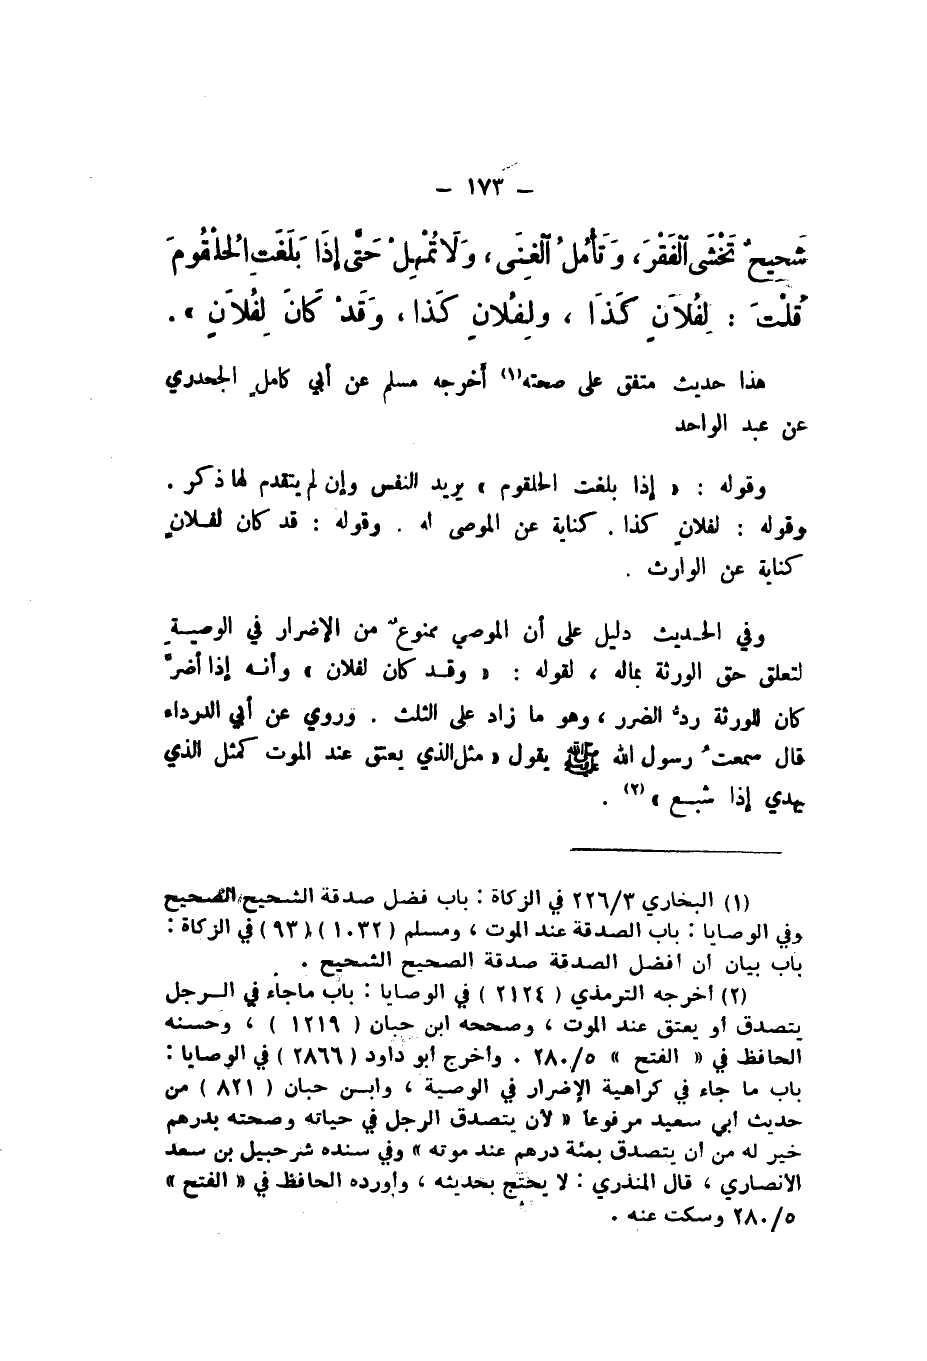 – ١٧٣ –
شَحِيحٌ تَخْشَى الْفَقْرَ، وَتَأْمُلُ الْغِنَى، وَلَا تُمْهِلْ حَتَّى إِذَا بَلَغَتِ الْحُلْقُومَ
قُلْتَ : لِفُلَانٍ كَذَا ، ولِفُلانٍ كَذا ، وَقَدْ كَانَ لِفُلَانٍ » .
هذا حديث متفق على صحته(١) أخرجه مسلم عن أبي كاملٍ الجحدري
عن عبد الواحد
وقوله : « إذا بلغت الحلقوم » يريد النفس وإن لم يتقدم لها ذكر .
وقوله : لفلانٍ كذا . كناية عن الموصى له . وقوله : قد كان لفلانٍ
كناية عن الوارث .
وفي الحديث دليل على أن الموصي ممنوعٌ من الإضرار في الوصيةِ
لتعلق حق الورثة بماله ، لقوله : « وقد كان لفلان » وأنه إذا أضرَّ
كان للورثة ردُّ الضرر ، وهو ما زاد على الثلث . وروي عن أبي الدرداء
قال سمعتُ رسول الله ﷺ يقول « مثل الذي يعتق عند الموت كمثل الذي
يهدي إذا شبع » (٢) .
(١) البخاري ٢٢٦/٣ في الزكاة : باب فضل صدقة الشحيح الصحيح
وفي الوصايا : باب الصدقة عند الموت ، ومسلم ( ١٠٣٢ ) ( ٩٣ ) في الزكاة :
باب بيان أن أفضل الصدقة صدقة الصحيح الشحيح .
(٢) أخرجه الترمذي ( ٢١٢٤ ) في الوصايا : باب ماجاء في الرجل
يتصدق أو يعتق عند الموت ، وصححه ابن حبان ( ١٢١٩ ) ، وحسنه
الحافظ في « الفتح » ٢٨٠/٥ . وأخرج أبو داود ( ٢٨٦٦ ) في الوصايا :
باب ما جاء في كراهية الإضرار في الوصية ، وابن حبان ( ٨٢١ ) من
حديث أبي سعيد مرفوعاً « لأن يتصدق الرجل في حياته وصحته بدرهم
خير له من أن يتصدق بمئة درهم عند موته » وفي سنده شرحبيل بن سعد
الأنصاري ، قال المنذري : لا يحتج بحديثه ، وأورده الحافظ في « الفتح »
٢٨٠/٥ وسكت عنه .